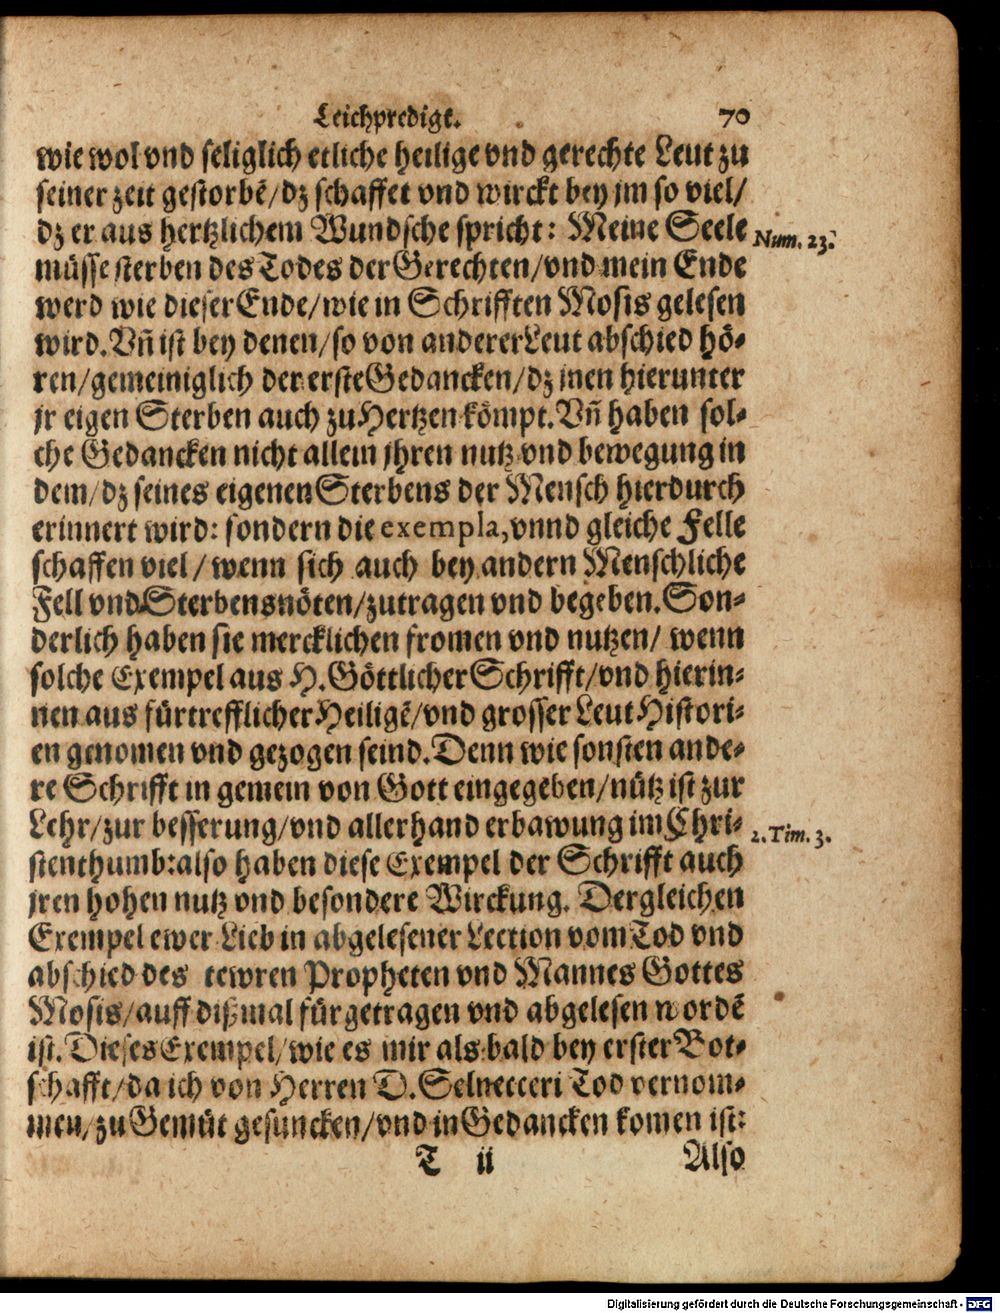 Leichpredigt. 70
wie wol vnd seliglich etliche heilige vnd gerechte Leut zu
seiner zeit gestorbẽ/dz schaffet vnd wirckt bey jm so viel/
dz er aus hertzlichem Wundsche spricht: Meine Seele
Num. 23.
müsse sterben des Todes der Gerechten/vnd mein Ende
werd wie dieser Ende/wie in Schrifften Mosis gelesen
wird. Vñ ist bey denen/so von anderer Leut abschied hö-
ren/gemeiniglich der erste Gedancken/dz jnen hierunter
jr eigen Sterben auch zu Hertzen kömpt. Vñ haben sol-
che Gedancken nicht allein jhren nutz vnd bewegung in
dem/dz seines eigenen Sterbens der Mensch hierdurch
erinnert wird: sondern die exempla, vnnd gleiche Felle
schaffen viel/wenn sich auch bey andern Menschliche
Fell vnd Sterbensnöten/zutragen vnd begeben. Son-
derlich haben sie mercklichen fromen vnd nutzen/ wenn
solche Exempel aus H. Göttlicher Schrifft/vnd hierin-
nen aus fürtrefflicher Heiligẽ/vnd grosser Leut Histori-
en genomen vnd gezogen seind. Denn wie sonsten ande-
re Schrifft in gemein von Gott eingegeben/nütz ist zur
Lehr/zur besserung/vnd allerhand erbawung im Chri-
2. Tim. 3.
stenthumb: also haben diese Exempel der Schrifft auch
jren hohen nutz vnd besondere Wirckung. Dergleichen
Exempel ewer Lieb in abgelesener Lection vom Tod vnd
abschied des tewren Propheten vnd Mannes Gottes
Mosis/auff dißmal fürgetragen vnd abgelesen wordẽ
ist. Dieses Exempel/wie es mir als bald bey erster Bot-
schafft/da ich von Herren D. Selnecceri Tod vernom-
men/zu Gemüt gesuncken/vnd in Gedancken komen ist:
T ii Also
Digitalisierung gefördert durch die Deutsche Forschungsgemeinschaft - DFG